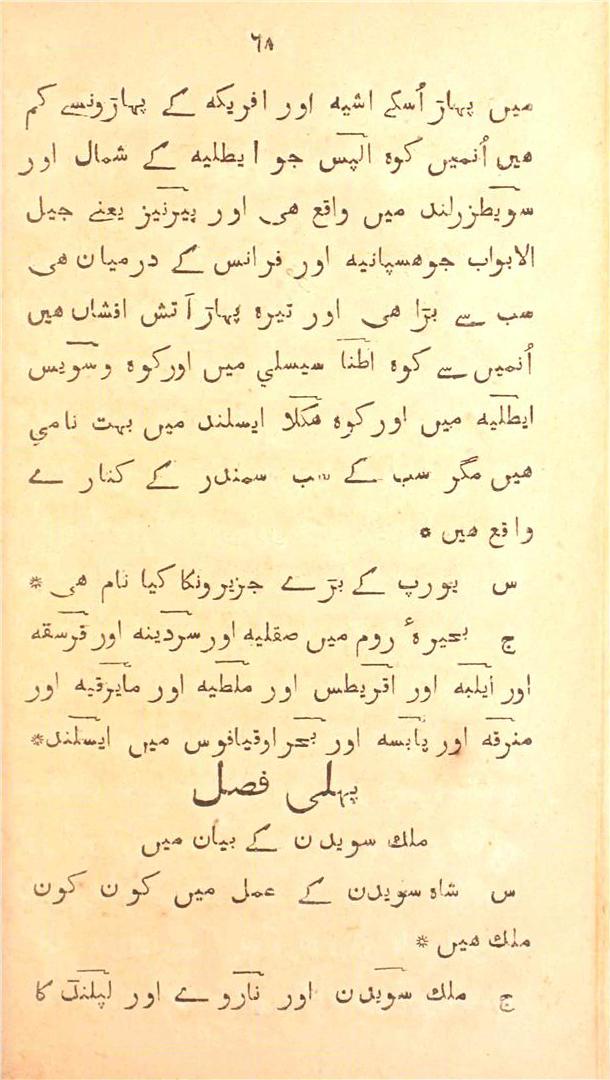 ٦٨
میں پہاڑ اُسکے اشیہ اور افریکہ کے پہاڑونسے کم
ھیں اُنمیں کوہ الپس جو ایطلیہ کے شمال اور
سویطزرلند میں واقع ھی اور پیرنیز یعنے جبل
الابواب جوھسپانیہ اور فرانس کے درمیان ھی
سب سے بڑا ھی اور تیرہ پہاڑ آتش افشاں ھیں
اُنمیں سے کوہ اطنا سیسلي میں اورکوہ وسویس
ایطلیہ میں اورکوہ ھکلا ایسلند میں بہت نامي
ھیں مگر سب کے سب سمندر کے کنارے
واقع ھیں *
س یورپ کے بڑے جزیرونکا کیا نام ھی *
ج بحیرۂ روم میں صقلیہ اور سردینہ اور قرسقہ
اور ایلبہ اور اقریطس اور ملطیہ اور مایرقیہ اور
منرقہ اور یابسہ اور بحر اوقیافوس میں ایسلند *
پہلی فصل
ملك سویدن کے بیان میں
س شاہ سویدن کے عمل میں کون کون
ملك ھیں *
ج ملك سویدن اور ناروے اور لپلند کا